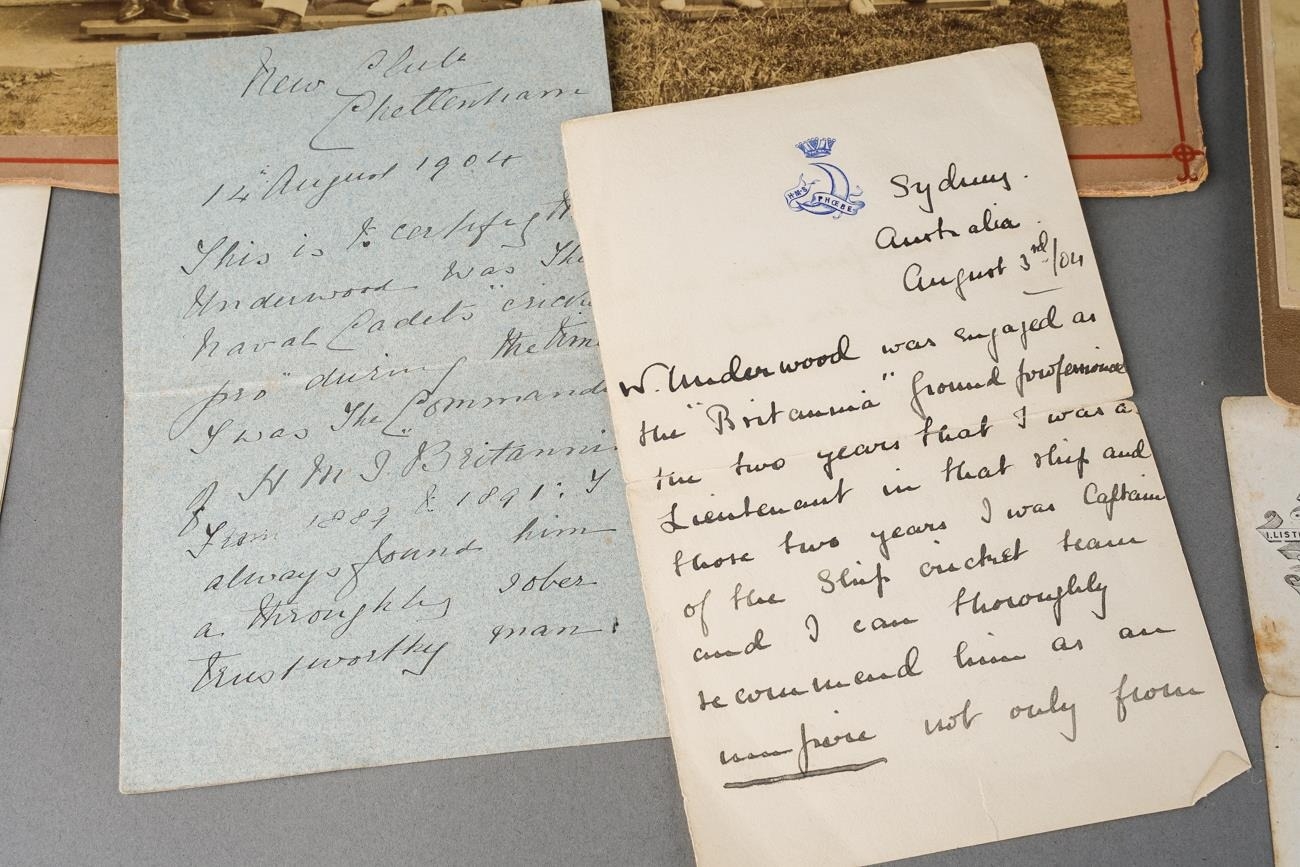 New Club
Cheltenham
14" August 1904
This is to certify
Underwood was The
Naval Cadets "
pro" during the time
I was The
of H M S
From 1889 to 1891: I
always found him
a throughly sober
trustworthy man.
H.M.S. PHŒBE
Sydney.
Australia
August 3rd/04
W. Underwood was engaged as
the "Britannia" ground professional
the two years that I was a
Lieutenant in that ship and
those two years I was Captain
of the Ship cricket team
and I can thoroughly
recommend him as an
umpire not only from